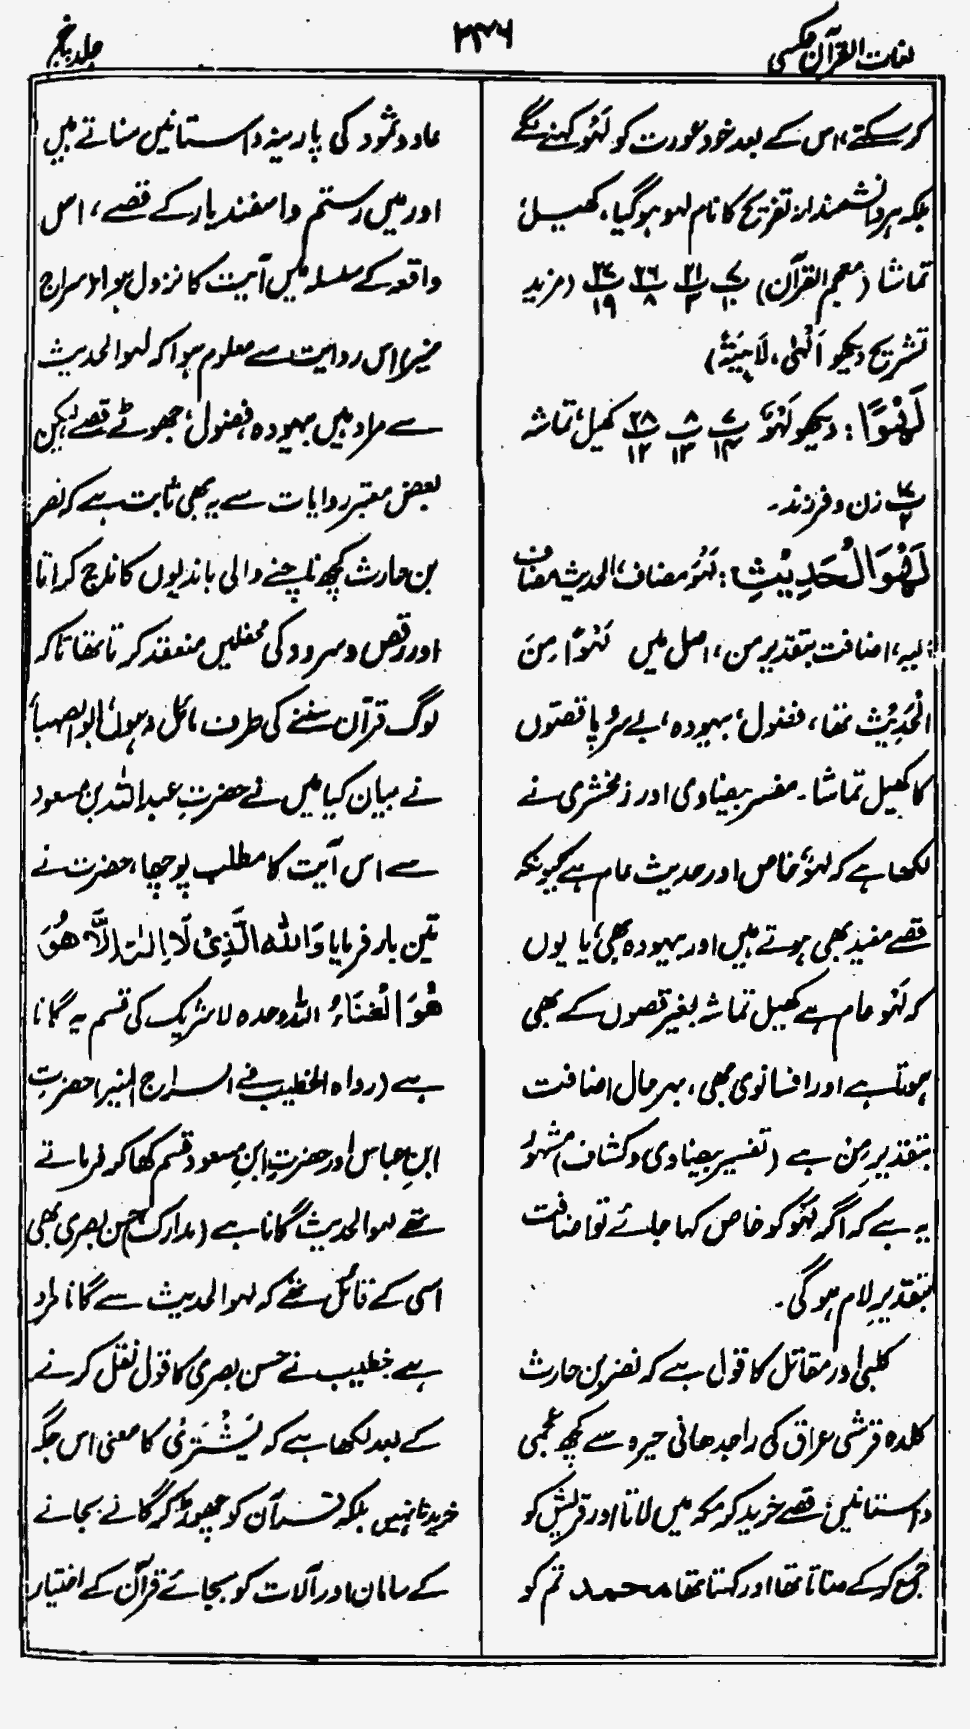 لغات القرآن عکسی
۲۴۶
جلد پنجم
کر سکتے، اس کے بعد خود عورت کو لَہْو کہنے لگے
بلکہ ہر دانشمندانہ تفریح کا نام لہو ہوگیا، کھیل،
تماشا (معجم القرآن) (مزید
تشریح دیکھو اَلْہٰی، لَاہِیَۃً)
لَہْوًا: دیکھو لَہْوٌ کھیل، تماشہ
زن و فرزند۔
لَہْوَ الْحَدِیْثِ: لَہْوَ مضاف، الحدیث مضاف
الیہ، اضافت بتقدیر من، اصل میں لَہْوًا مِنَ
الْحَدِیْثِ تھا، فضول، بیہودہ، بے سروپا قصوں
کا کھیل تماشا۔ مفسر بیضاوی اور زمخشری نے
لکھا ہے کہ لہو خاص اور حدیث عام ہے کیونکہ
قصے مفید بھی ہوتے ہیں اور بیہودہ بھی، یا یوں
کہ لَہْو عام ہے کھیل تماشہ بغیر قصوں کے بھی
ہوتا ہے اور افسانوی بھی، بہرحال اضافت
بتقدیرِ مِنْ ہے (تفسیر بیضاوی و کشاف) مشہور
یہ ہے کہ اگر لہو کو خاص کہا جائے تو اضافت
بتقدیرِ لام ہوگی۔
کلبی اور مقاتل کا قول ہے کہ نضر بن حارث
کلدہ قرشی عراق کی راجدھانی حیرہ سے کچھ عجمی
داستانیں، قصے خرید کر مکہ میں لاتا اور قریش کو
جمع کر کے سناتا تھا اور کہتا تھا محمد تم کو
عاد و ثمود کی پارینہ داستانیں سناتے ہیں
اور میں رستم و اسفندیار کے قصے، اس
واقعہ کے سلسلہ میں آیت کا نزول ہوا (سراج
منیر) اس روایت سے معلوم ہوا کہ لہو الحدیث
سے مراد ہیں بیہودہ، فضول، جھوٹے قصے لیکن
بعض معتبر روایات سے یہ بھی ثابت ہے کہ نضر
بن حارث کچھ ناچنے والی باندیوں کا ناچ کراتا
اور رقص و سرود کی محفلیں منعقد کرتا تھا تاکہ
لوگ قرآن سننے کی طرف مائل نہ ہوں، ابو الصہبأ
نے بیان کیا میں نے حضرت عبداللہ بن مسعود
سے اس آیت کا مطلب پوچھا، حضرت نے
تین بار فرمایا وَاللہِ الَّذِیْ لَا اِلٰہَ اِلَّا ھُوَ
ھُوَ الْغِنَاءُ اللہ وحدہ لا شریک کی قسم یہ گانا
ہے (رواہ الخطیب فی السراج المنیر) حضرت
ابنِ عباس اور حضرتِ ابنِ مسعود قسم کھا کر فرماتے
تھے لہو الحدیث گانا ہے (مدارک) حسن بصری بھی
اسی کے قائل تھے کہ لہو الحدیث سے گانا مراد
ہے خطیب نے حسن بصری کا قول نقل کرنے
کے بعد لکھا ہے کہ یَشْتَرِیْ کا معنی اس جگہ
خریدنا نہیں بلکہ قرآن کو چھوڑ کر گانے بجانے
کے سامان اور آلات کو بجائے قرآن کے اختیار